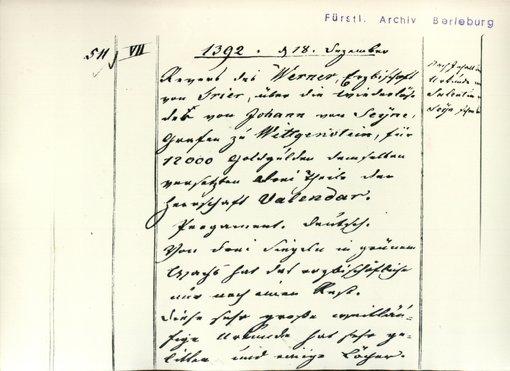 Fürstl. Archiv Berleburg
511 VII
1392. d 18. Dezember
Revers des Werner, Erzbischoff
von Trier, über die Wiederlöse
des von Johann von Seyne,
Grafen zu Wittgenstein, für
12000 Goldgülden demselben
versetzten drei Theile der
Herrschaft Valendar.
Pergament. Deutsch.
Von drei Siegeln in grünem
Wachs hat das erzbischöfliche
nur noch einen Rest.
Diese sehr große weitläu-
fige Urkunde hat sehr ge-
litten und einige Löcher.